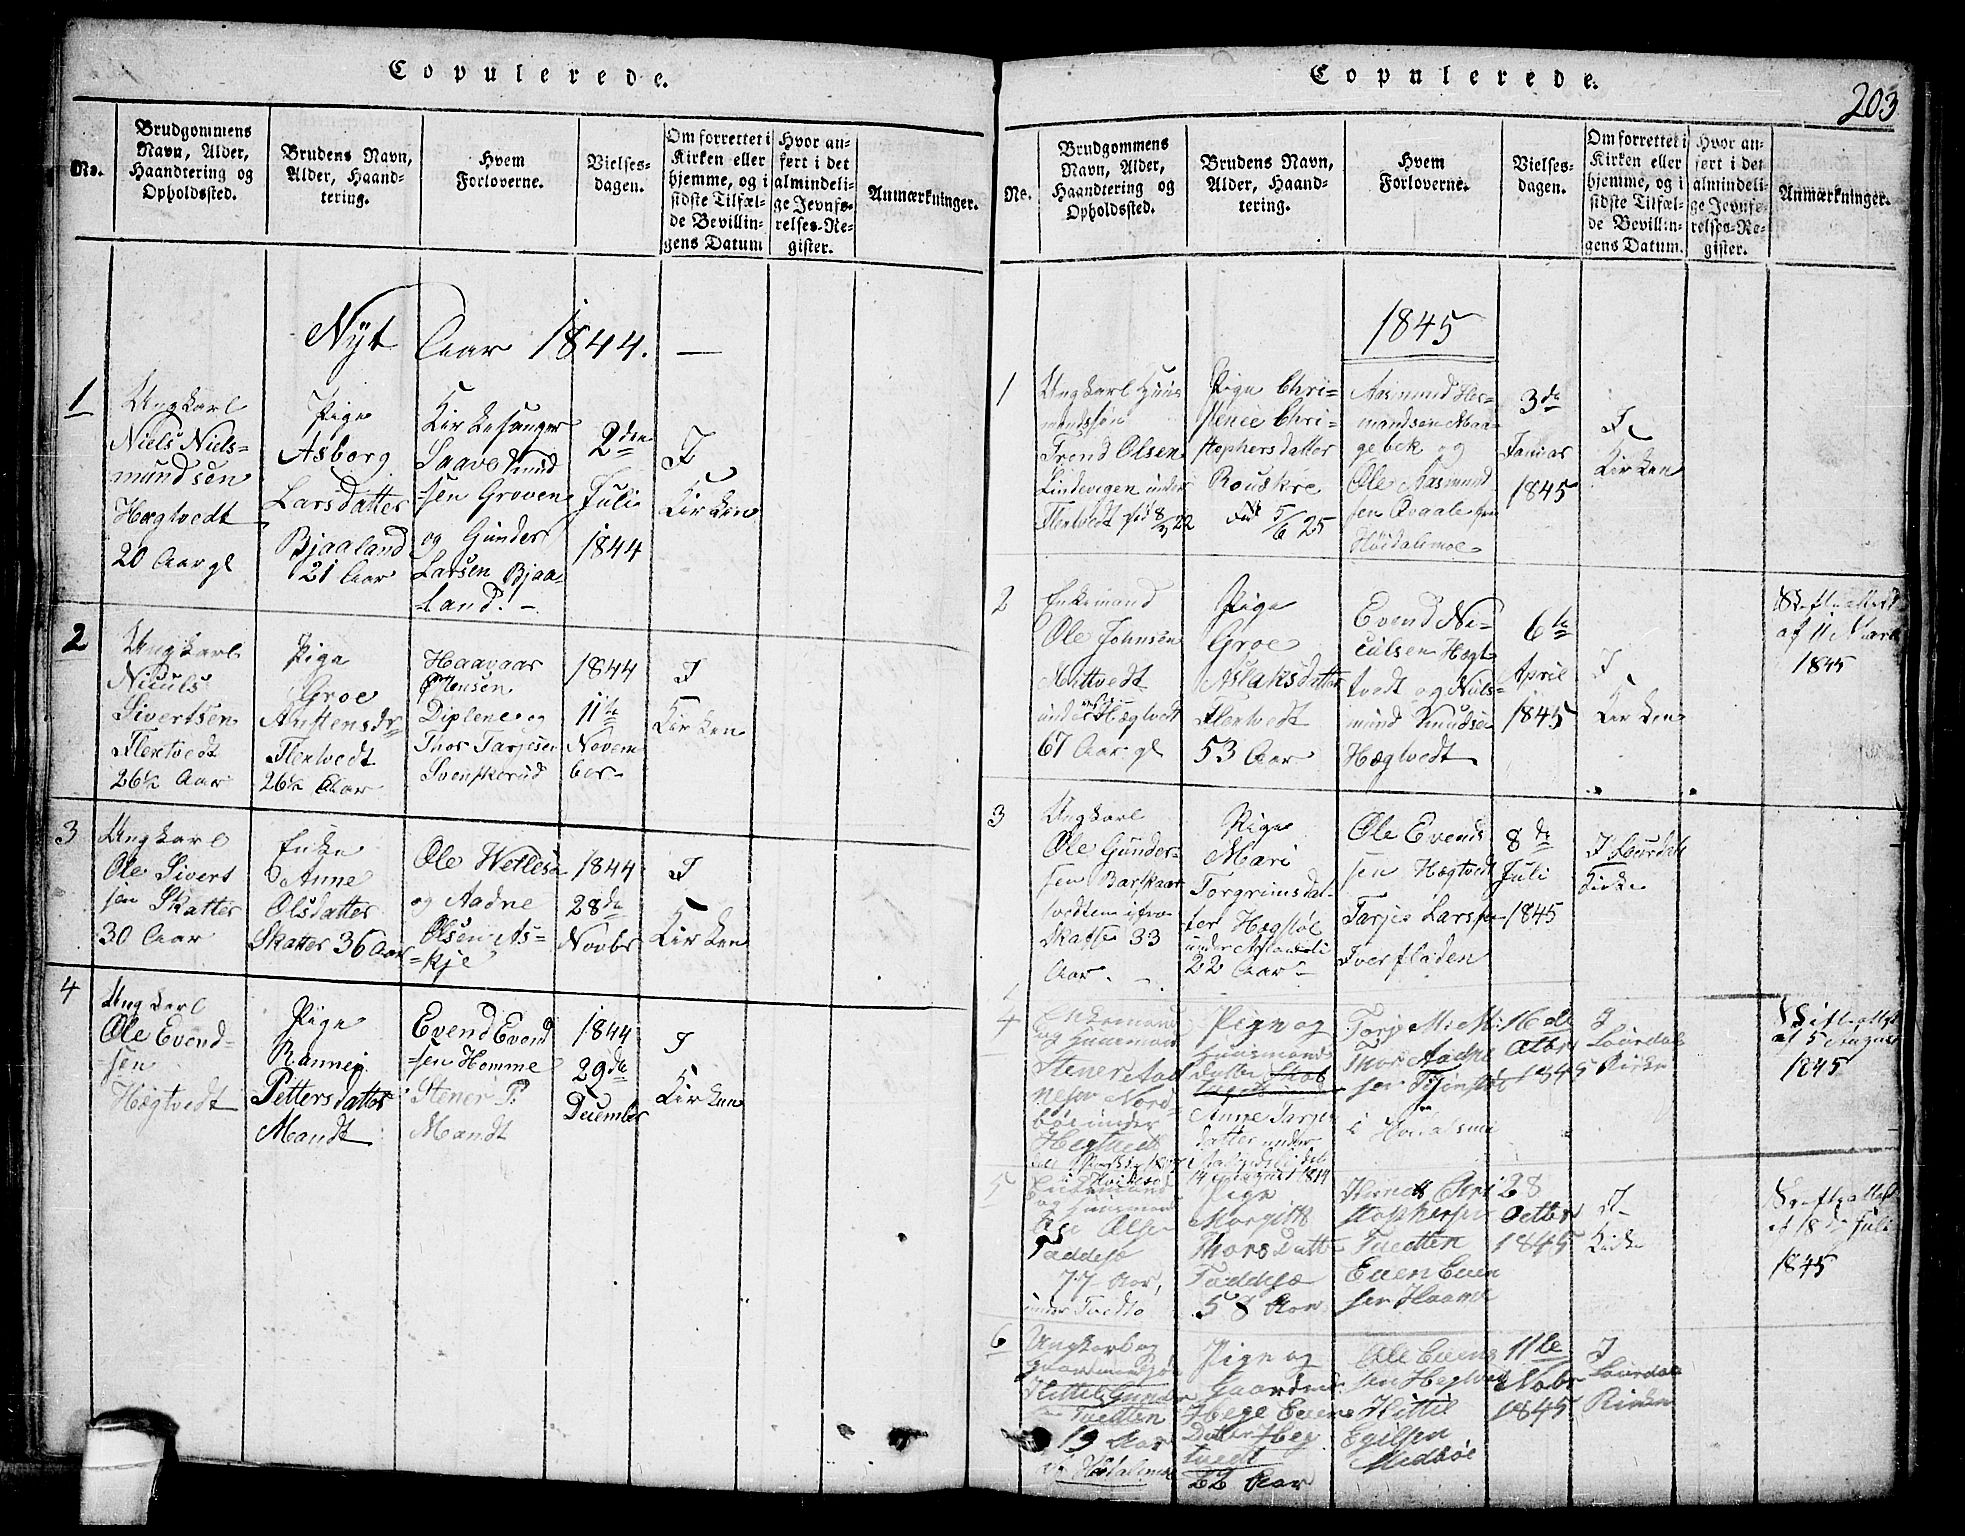 Copulerede.
No.
Brudgommens
Navn, Alder,
Haandtering og
Opholdssted.
Brudens Navn,
Alder, Haand-
tering.
Hvem
Forloverne.
Vielses-
dagen.
Om forrettet i
Kirken eller
hjemme, og i
sidste Tilfæl-
de Bevillin-
gens Datum
Hvor an-
ført i det
almindeli-
ge Jevnfø-
relses-Re-
gister.
Anmærkninger.
Nÿt Aar 1844. —
1
Ungkarl
Niels Niels-
mundsen
Hægtvedt
20 Aar gl
Pige
Asborg
Larsdatter
Bjaaland
21 Aar
Kirkesanger
Saave Knud
sen Groven
og Gunder
Larsen Bjaa-
land. -
2den
Juli
1844
I
Kirken
2
Ungkarl
Sivertsen
Flertvedt
26½ Aar
Pige
Groe
Flertvedt
26½ Aar
Haavaar
Diplene og
Thor Tarjesen
Svenskerud
1844
11te
Novem
ber
I
Kirken
3
Ungkarl
Ole Sivert
sen Skatter
30 Aar
Enke
Anne
Olsdatter
Skatter 36 Aar
Ole
og Aadne
Olsen As-
kje
1844
28de
Novbr
I
Kirken
4
Ungkarl
Ole Evend-
sen
Hægtvedt
Pige
Rannei
Pettersdatter
Mandt
Evend Evend
-sen Homme
Stener P.
Mandt
1844
29de
December
I
Kirken
Copulerede.
203
No.
Brudgommens
Navn, Alder,
Haandtering og
Opholdssted.
Brudens Navn,
Alder, Haand-
tering.
Hvem
Forloverne.
Vielses-
dagen.
Om forrettet i
Kirken eller
hjemme, og i
sidste Tilfæl-
de Bevillin-
gens Datum.
Hvor an-
ført i det
almindeli-
ge Jevnfø-
relses-Re-
gister.
Anmærkninger.
1845
1
Ungkarl Huus
mandssøn
Trond Olsen
Lindevigen under
Flertvedt
Pige Chri-
stence Chri-
stophersdatter
Rouskre
5/6 25
Aasmund Her-
mandsen Maa-
gebek og
Ole Aasmund
sen Qvaale
3de
Januar
1845
I
Kirken
2
Enkemand
Ole Johnsen
under Hægtvedt
67 Aar gl
Pige
Groe
Aslaksdatter
Flertvedt
53 Aar
Evend Ni-
culsen Hægt
tvedt og Niels-
mund Knudsen
Hægtvedt
6te
April
1845
I
Kirken
Skifteattest
af 11 Marts
1845
3
Ungkarl
Ole Gunder-
sen
33
Aar. -
Pige
Mari
Torgrimsdat-
ter
22 Aar
Ole Evend
sen Hægtvedt
Tarjes Larsen
Iverfladen
8de
Juli
1845
I Laurdals
Kirke
4
Enkemand
og Huusmand
Stener Aad
nesen Nord-
bøe under
Hegtvedt
Pige og
Huusmands
datter
Anne Tarjes
datter under
14 August 1814
Thor Aadne
sen
16de
1845
I
Laurdals
Kirke
Skifteattest
af 5 August
1845
5
Enkemand
og Huusmand
Olsen
77 Aar,
under
Pige
Margitt
Thorsdatter
58 Aar
Knudt Chri
stophersen
Tvedten
Even Even
sen Haame
28
Octbr
1845
I
Kirke
Skifteattest
af 18de Juli
1845
6
Ungkarl og
Kittil Gunder
sen Tvedten
19 Aar
Pige og
Hege Evens
Datter Heg
tvedt
22 Aar
Ole Evens
sen Hegtvedt
Kittil
Egilsen
Midbøe
11te
Nobr
1845
I
Laurdals
Kirken